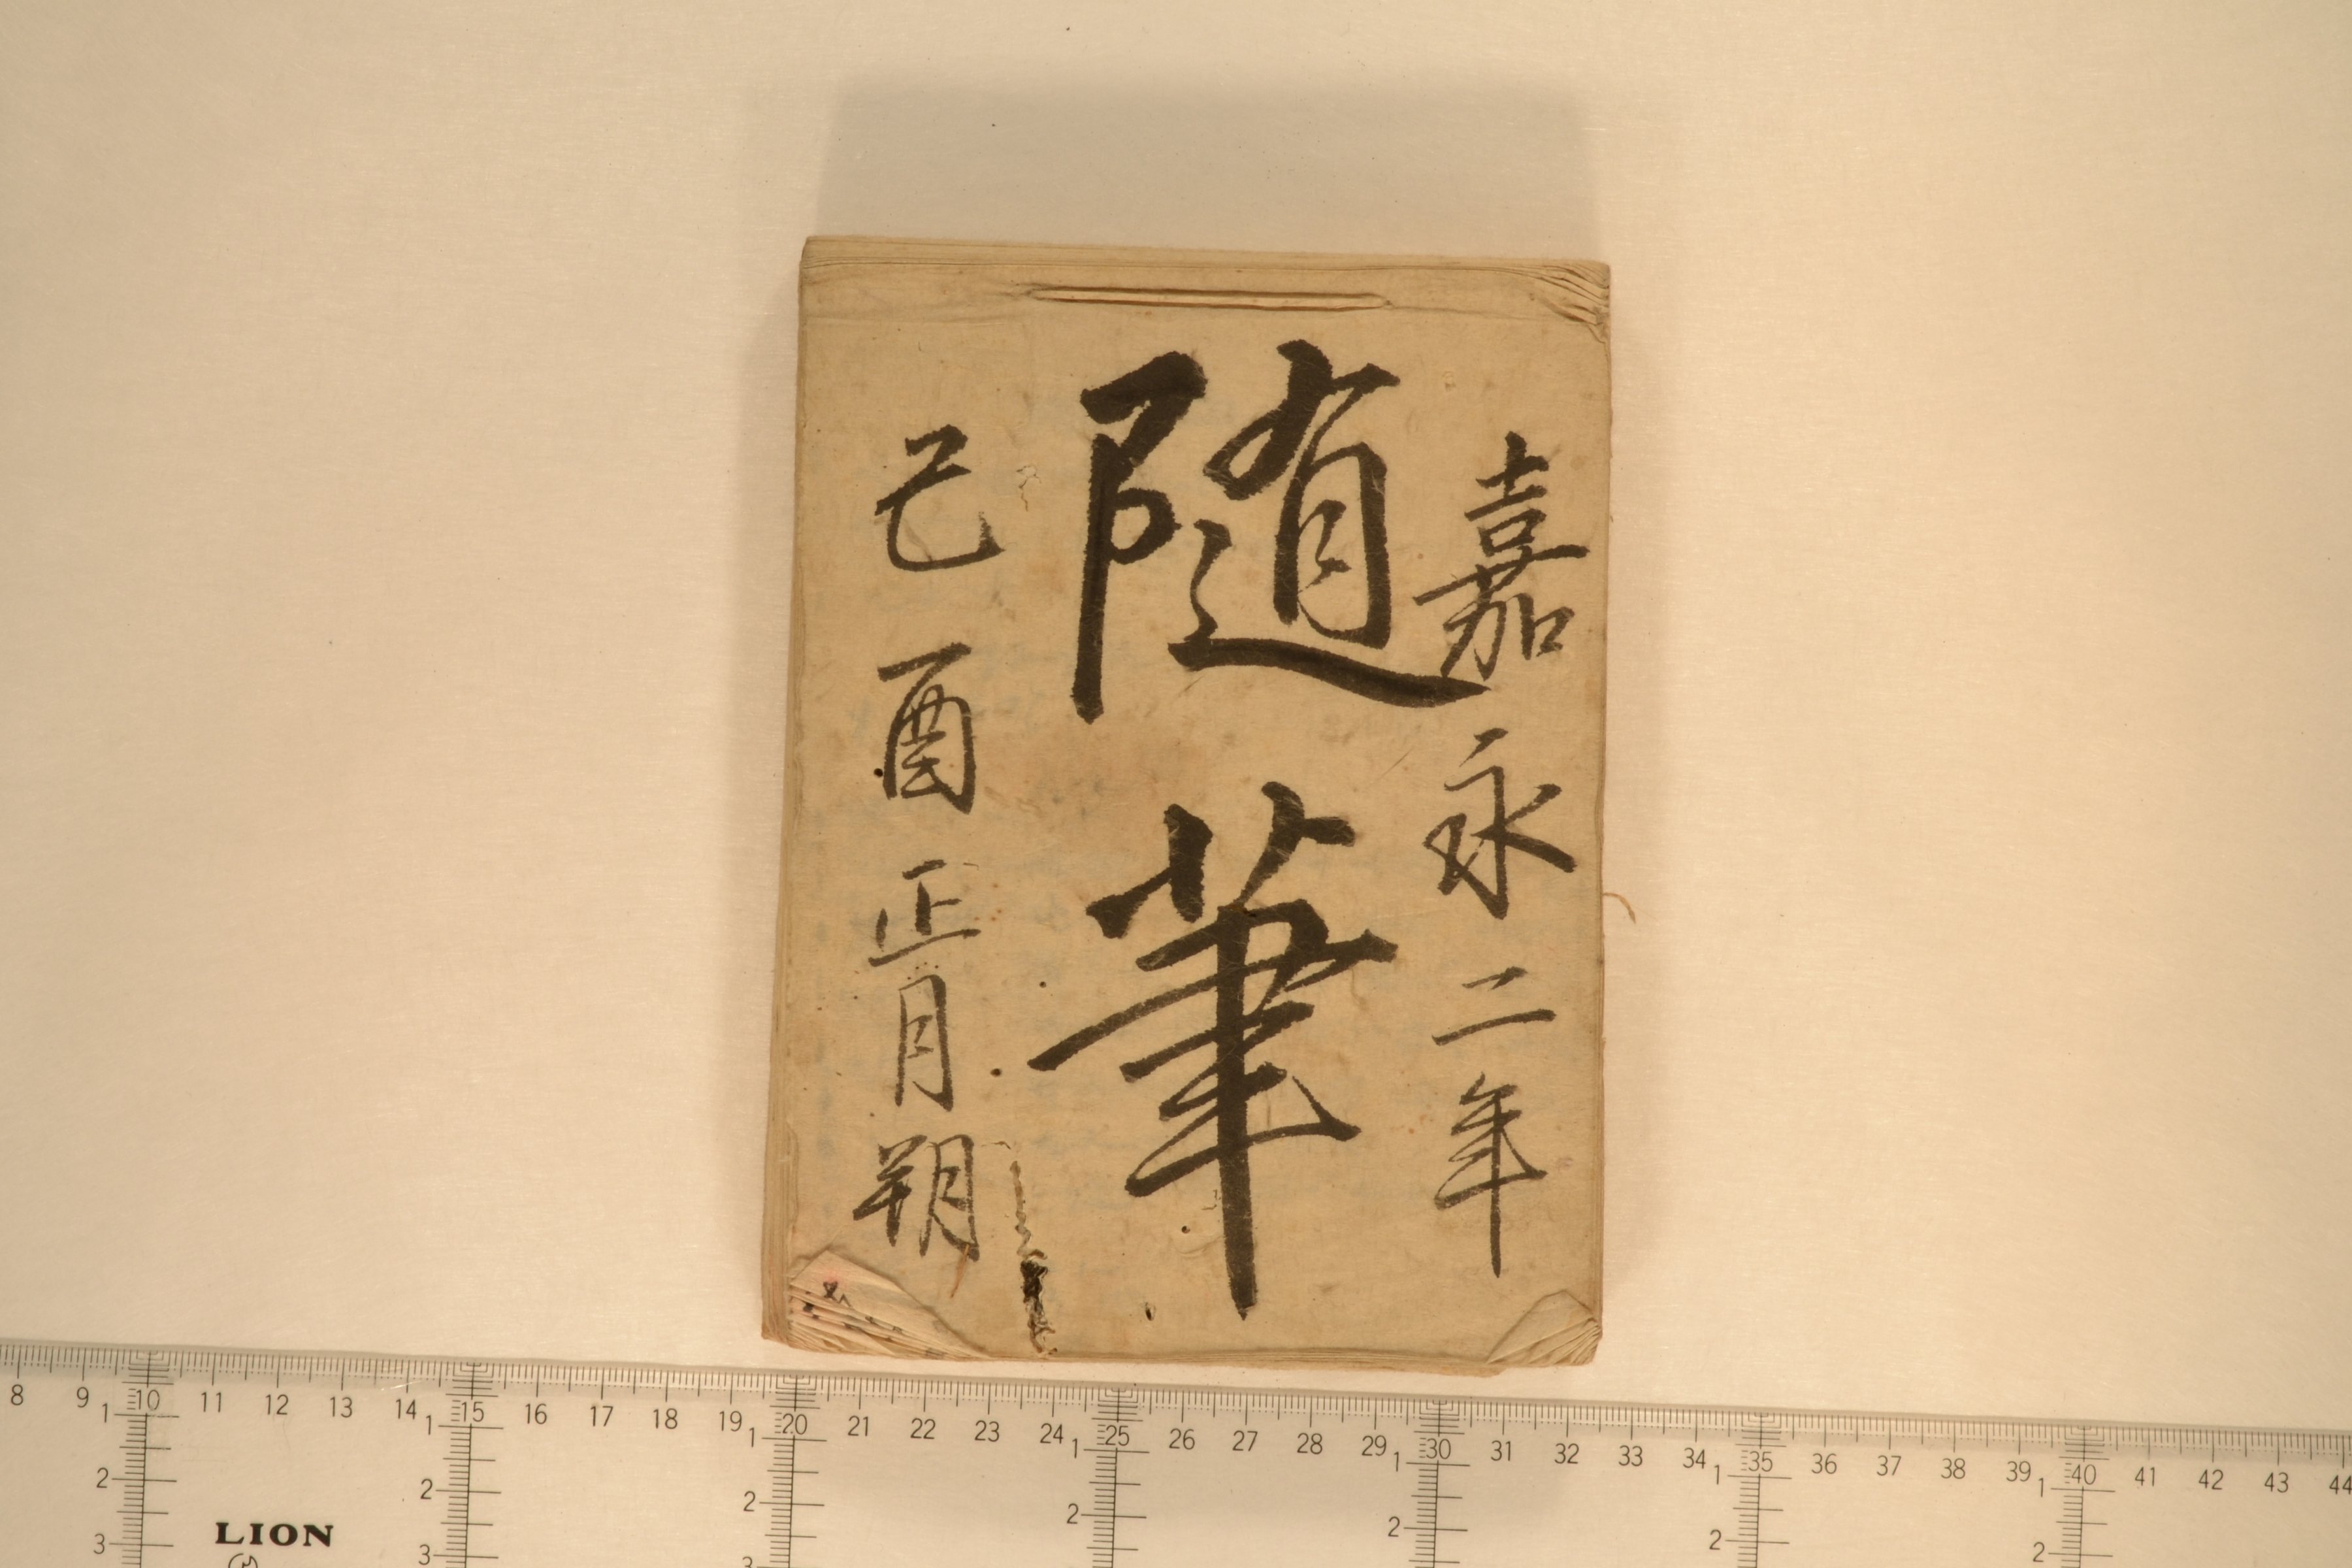 嘉永二年
随筆
己酉正月朔
8 9 10 11 12 13 14 15 16 17 18 19 20 21 22 23 24 25 26 27 28 29 30 31 32 33 34 35 36 37 38 39 40 41 42 43 44
1 1 1 1 1 1 1
2 2 2 2 2 2 2
3 3 3
LION